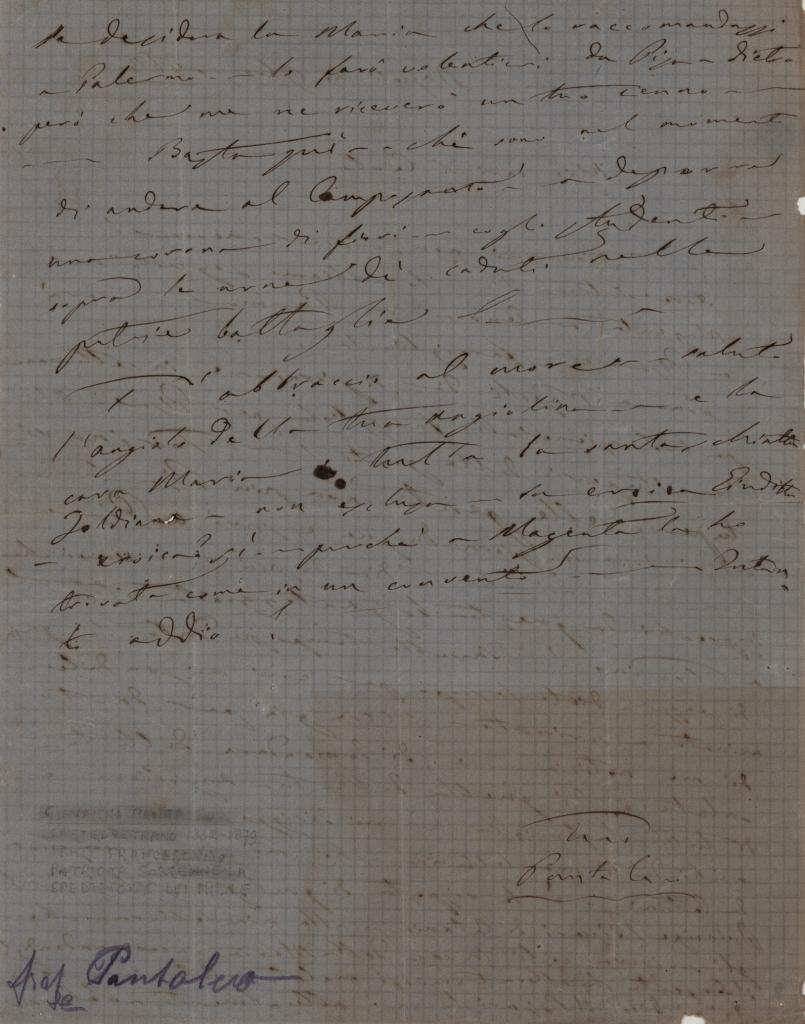 se desidera la Maria che lo raccomandassi
a Palermo — lo farò volentieri da Pisa — dietro
però che me ne riceverò un tuo cenno —
— Basta quì — chè sono nel momento
di andare al Camposanto a deporre
una corona di fiori — cogli studenti —
sopra le urne de' caduti nelle
patrie battaglie —
T' abbraccio al cuore — saluta
l'angiolo della tua Angiolina — e la
cara Maria, tutta la santa schiatta
— non esclusa — la eroica
— eroica? sì — perchè a Magenta la ho
trovata come in un convento — Intan-
to addio!
Tuo
Pantaleo
CASTELVETRANO 1832-1879
FRATE FRANCESCANO
PATRIOTA
SPEDIZIONE DEI MILLE
Pantaleo